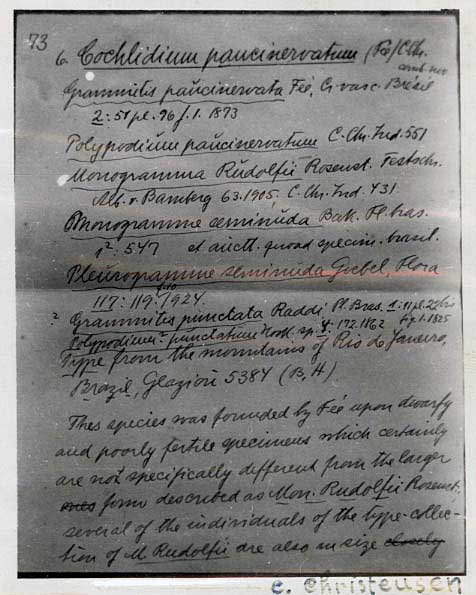 73
6. Cochlidium paucinervatum (Fée) C.Chr.
comb. nov
Grammitis paucinervata Fée, Cr. vasc. Brésil
2: 51 pl. 96 f. 1. 1873
Polypodium paucinervatum C. Chr. Ind. 551
Monogramma Rudolfii Rosenst. Festschr.
Alb. v. Bamberg 63. 1905; C. Chr. Ind. 431.
Monogramme seminuda Bak. Fl. bras.
1² 547 et auctt. quoad specim. brasil.
Pleurogramme seminuda Goebel, Flora
117: 119. 1924.
? Grammitis punctata Raddi Pl. Bras. 1: 11 pl. 22 bis
f. 1. 1825
Polypodium punctatum Hook. sp. 4: 172. 1862
Type from the mountains of Rio de Janeiro,
Brazil, Glaziou 5384 (B, H)
Thes species was founded by Fée upon dwarfy
and poorly fertile specimens which certainly
are not specifically different from the larger
ones form described as Mon. Rudolfii Rosenst.;
several of the individuals of the type-collec-
tion of M Rudolfii are also in size closely
C. Christensen